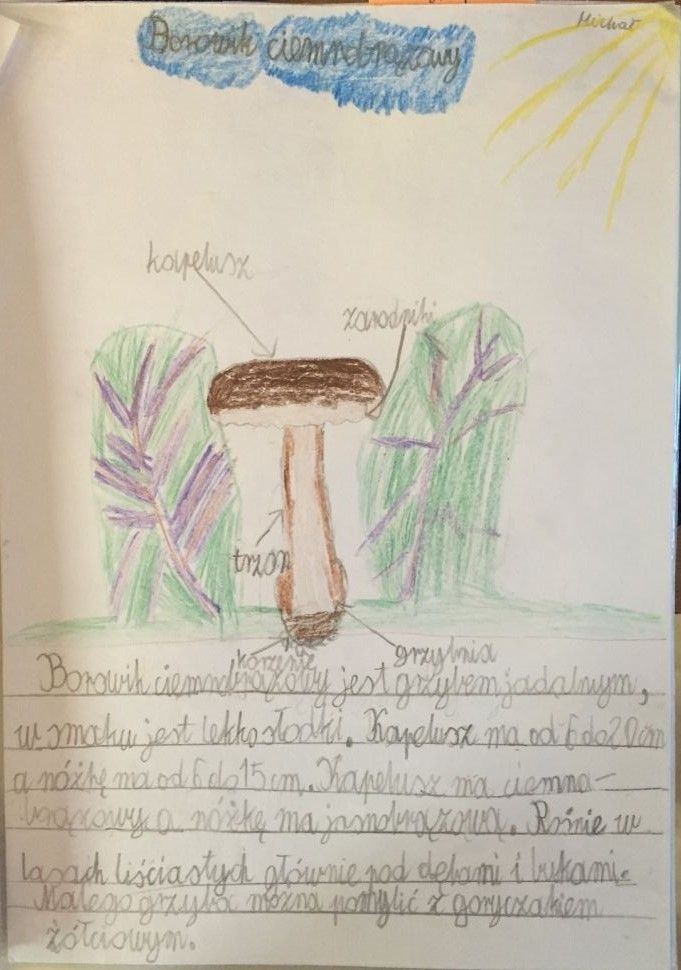 Michał
Borowik ciemnobrązowy
kapelusz
zarodniki
trzon
korzenie
grzybnia
Borowik ciemnobrązowy jest grzybem jadalnym,
w smaku jest lekko słodki. Kapelusz ma od 6 do 20 cm
a nóżkę ma od 6 do 15 cm. Kapelusz ma ciemno-
brązowy a nóżkę ma jasnobrązową. Rośnie w
lasach liściastych głównie pod dębami i bukami.
Małego grzyba można pomylić z goryczakiem
żółciowym.